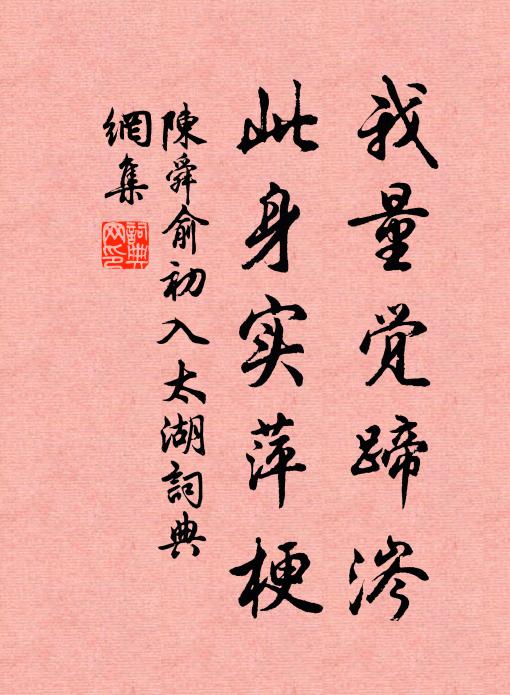 我量觉蹄涔
此身实萍梗
陳舜俞初入太湖詞典
網集
詞典網印